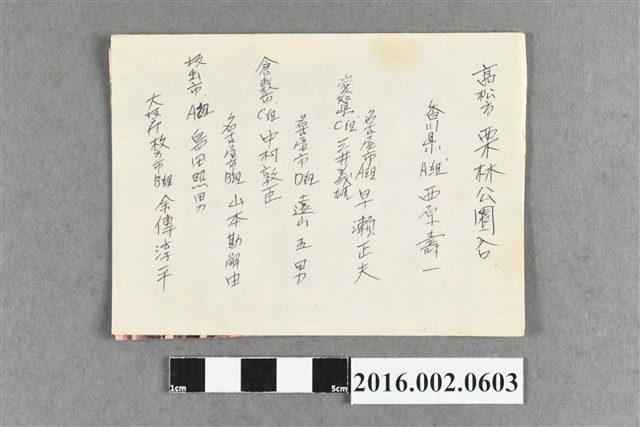 高松市 栗林公園合
香川県 A組 西原壽一
名古屋市 A組 早瀬正夫
愛知県 C組 三井義雄
名古屋市 D組 遠山五男
倉敷市 C組 中村敦臣
名古屋 B組 山本勘解由
坂出市 A組 島田照男
大坂府枚方市 B組 余傳淳平
1cm
5cm
2016.002.0603